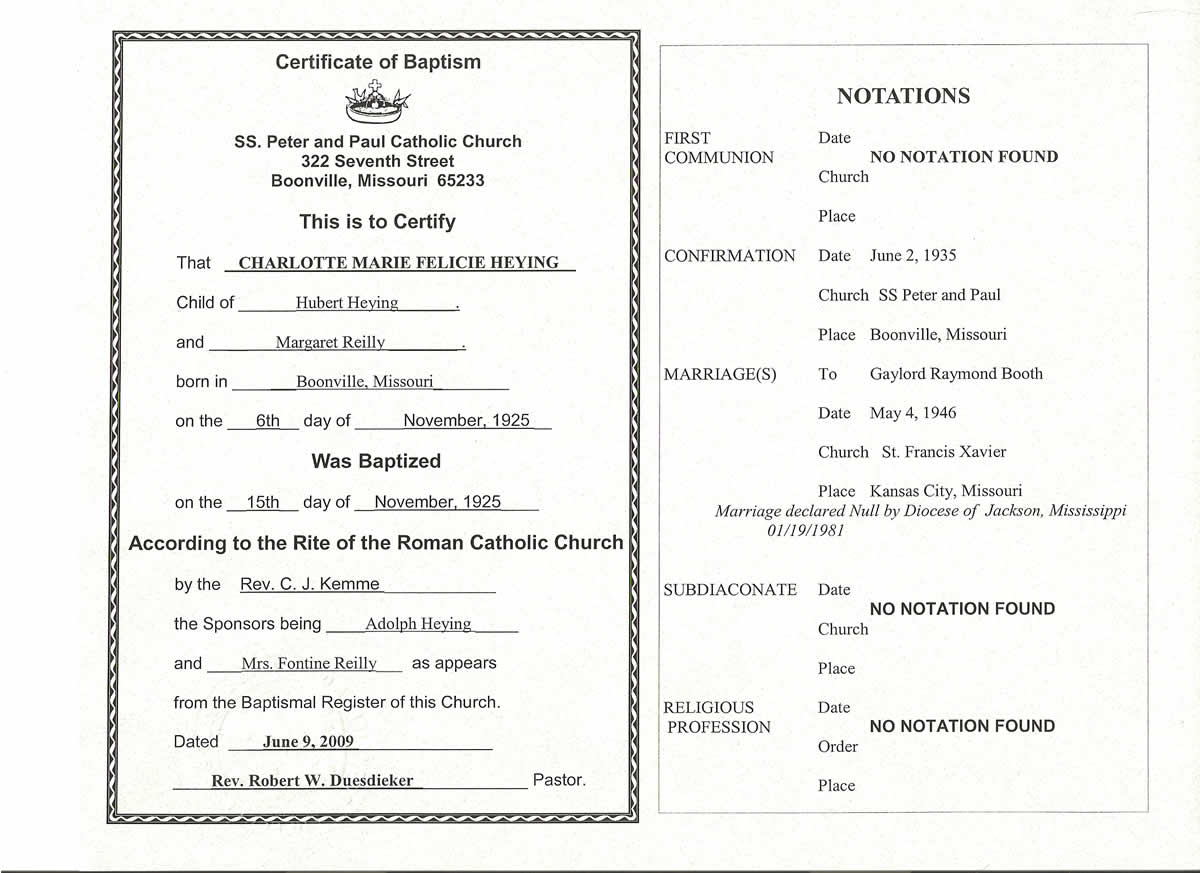 Certificate of Baptism
SS. Peter and Paul Catholic Church
322 Seventh Street
Boonville, Missouri 65233
This is to Certify
That CHARLOTTE MARIE FELICIE HEYING
Child of Hubert Heying .
and Margaret Reilly .
born in Boonville, Missouri
on the 6th day of November, 1925
Was Baptized
on the 15th day of November, 1925
According to the Rite of the Roman Catholic Church
by the Rev. C. J. Kemme
the Sponsors being Adolph Heying
and Mrs. Fontine Reilly as appears
from the Baptismal Register of this Church.
Dated June 9, 2009
Rev. Robert W. Duesdieker Pastor.
NOTATIONS
FIRST Date
COMMUNION NO NOTATION FOUND
Church
Place
CONFIRMATION Date June 2, 1935
Church SS Peter and Paul
Place Boonville, Missouri
MARRIAGE(S) To Gaylord Raymond Booth
Date May 4, 1946
Church St. Francis Xavier
Place Kansas City, Missouri
Marriage declared Null by Diocese of Jackson, Mississippi
01/19/1981
SUBDIACONATE Date
NO NOTATION FOUND
Church
Place
RELIGIOUS Date
PROFESSION NO NOTATION FOUND
Order
Place